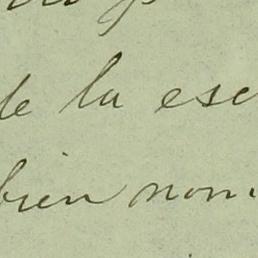 de la esc
bien nom